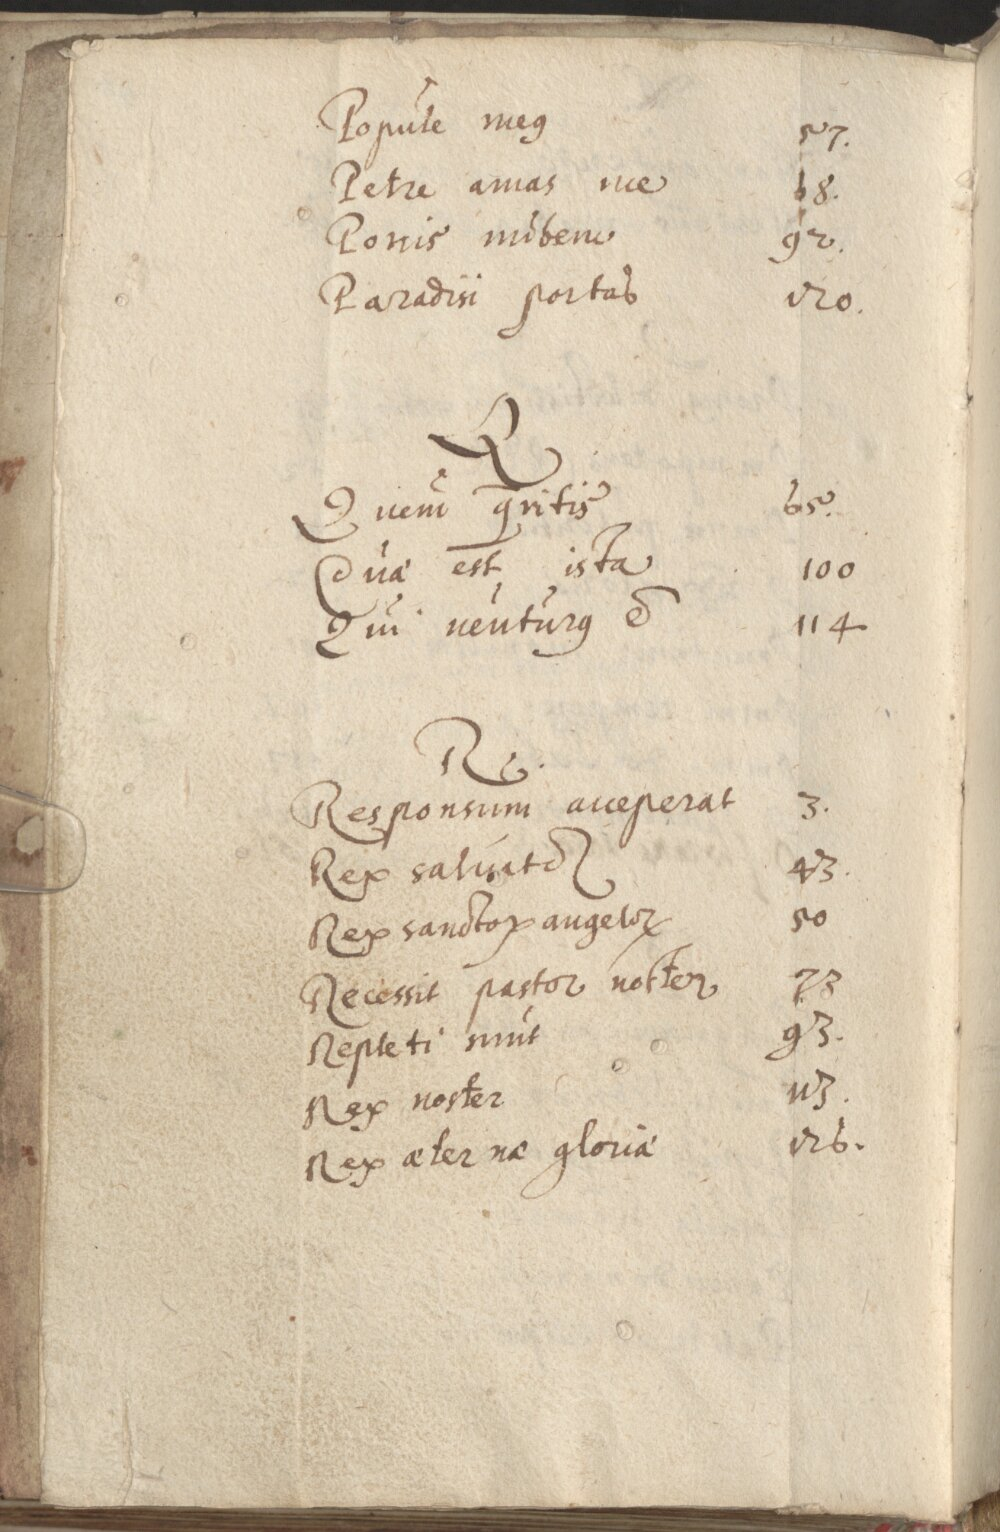 Popule meꝯ 57.
Petre amas me 68.
Ponis nubem 92.
Paradisi portas 120.
Q
Quem q̄ritis 65.
Quæ est ista 100
Qui uenturꝯ ē 114
R.
Responsum acceperat 3.
Rex saluator 43.
Rex sanctoꝝ angeloꝝ 50
Recessit pastor noster 73
Repleti sunt 93.
Rex noster 113.
Rex æternæ gloriæ 126.